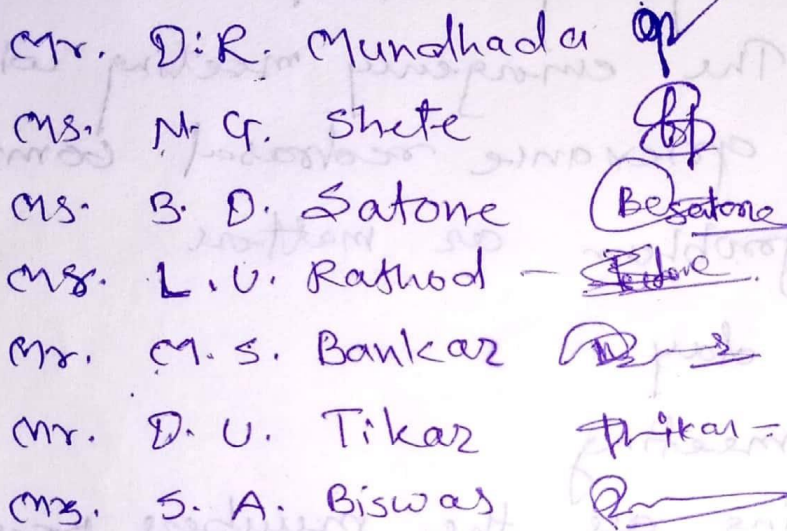 Mr. D. R. Mundhada
Ms. N. G. Shete
Ms. B. D. Satone Besatone
Ms. L. U. Rathod -
Mr. M. S. Bankar
Mr. D. U. Tikar
Ms. S. A. Biswas